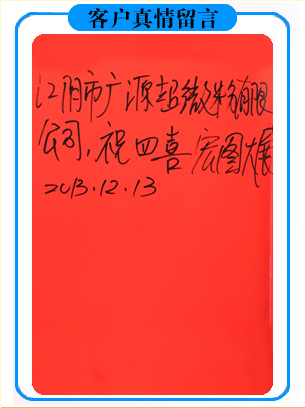 客户真情留言
江阴市广源超微粉有限
公司,祝四喜宏图大展
2013.12.13